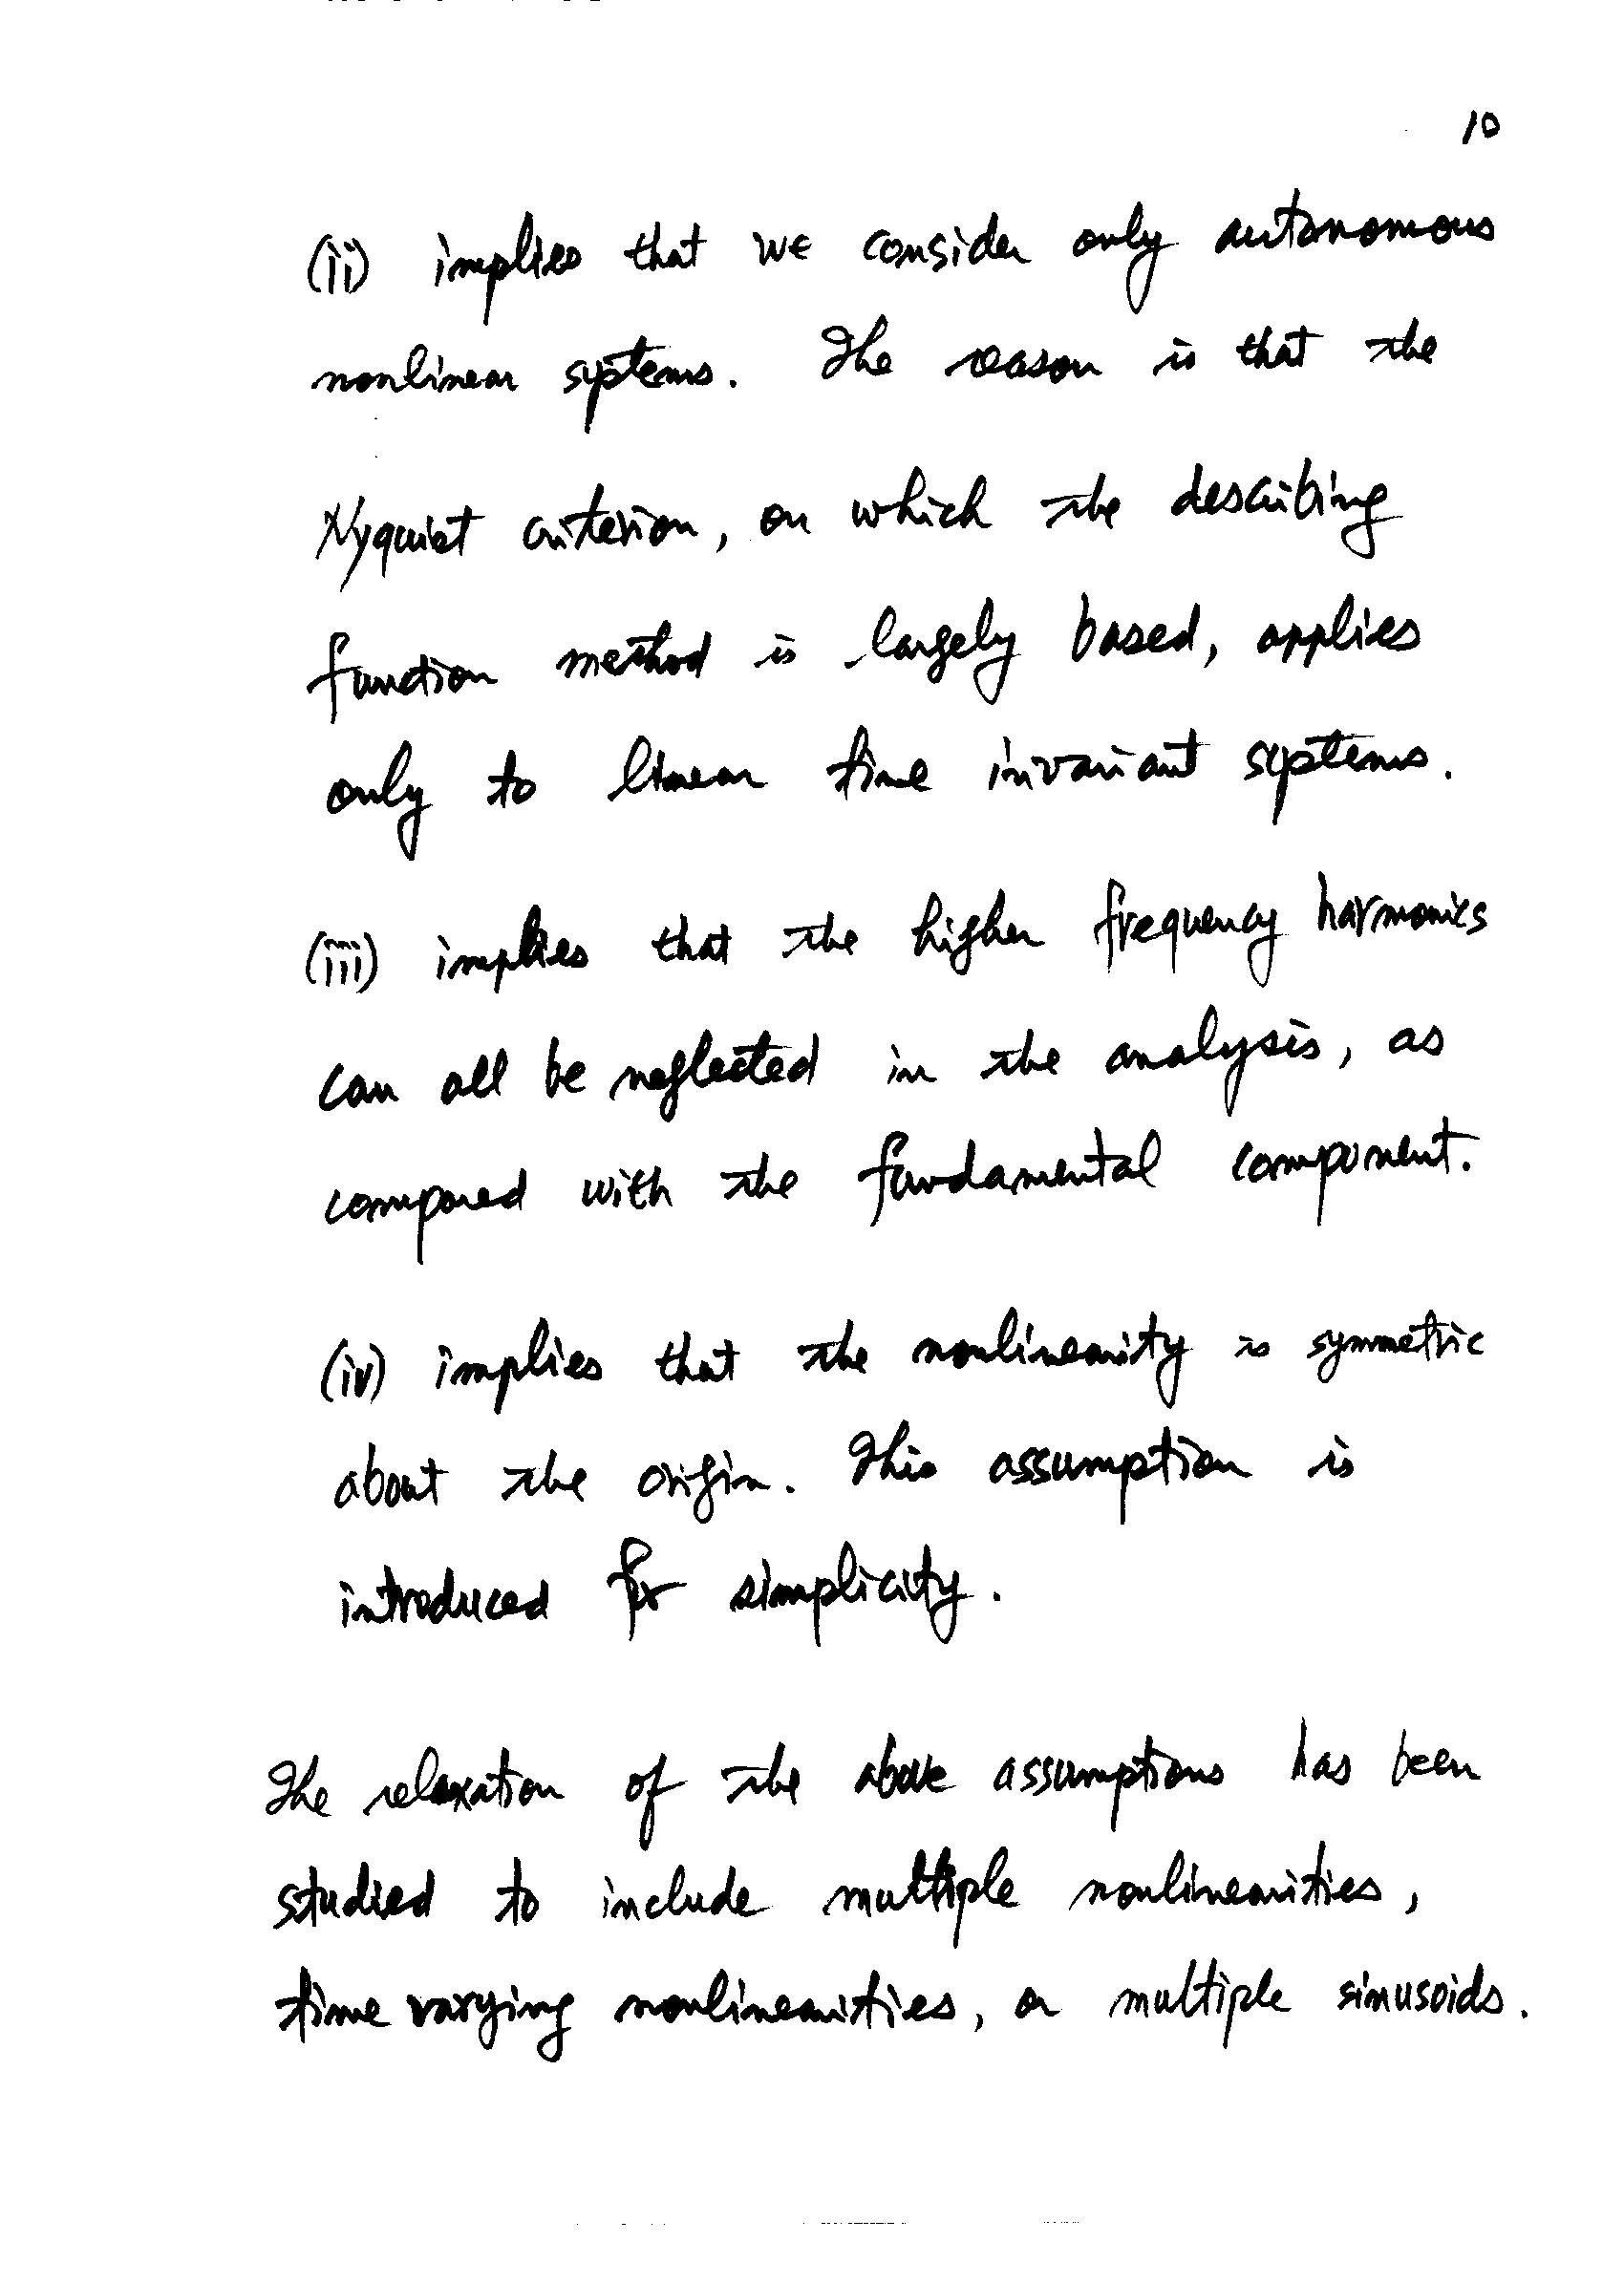 10
(ii) implies that we consider only autonomous
nonlinear systems. The reason is that the
Nyquist criterion, on which the describing
function method is largely based, applies
only to linear time invariant systems.
(iii) implies that the higher frequency harmonics
can all be neglected in the analysis, as
compared with the fundamental component.
(iv) implies that the nonlinearity is symmetric
about the origin. This assumption is
introduced for simplicity.
The relaxation of the above assumptions has been
studied to include multiple nonlinearities,
time varying nonlinearities, or multiple sinusoids.